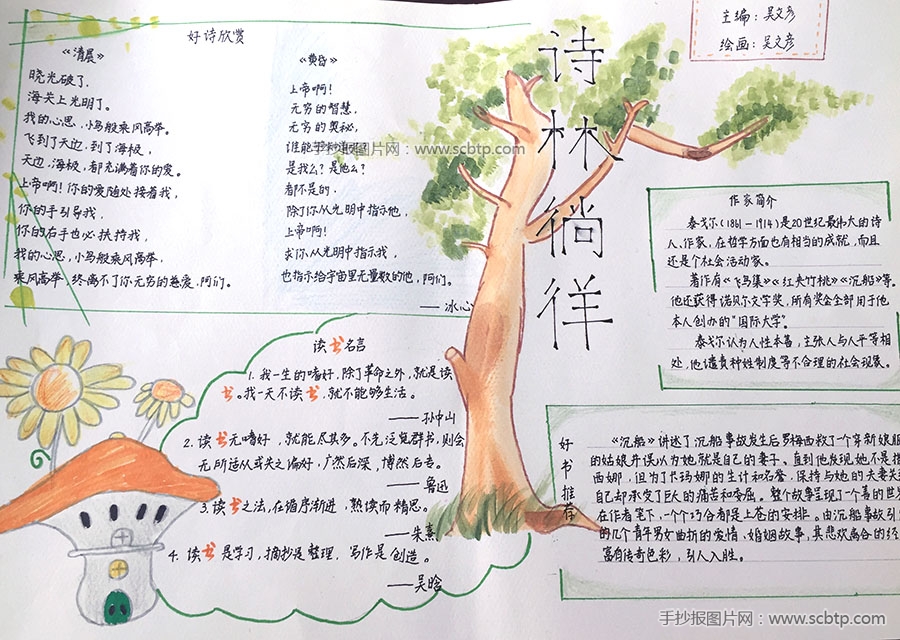 主编：吴文彦
绘画：吴文彦
诗林徜徉
好诗欣赏
《清晨》
晓光破了，
海关上光明了。
我的心思，小鸟般乘风高举。
飞到了天边，到了海极，
天边，海极，都充满着你的爱。
上帝啊！你的爱随处接着我，
你的手引导我，
你的右手也必扶持我，
我的心思，小鸟般乘风高举，
乘风高举，终离不了你无穷的慈爱，阿们。
《黄昏》
上帝啊！
无穷的智慧，
无穷的奥秘，
谁能
是我么？是他么？
都不是的，
除了你从光明中指示他，
上帝啊！
求你从光明中指示我，
也指示给宇宙里无量数的他，阿们。
——冰心
手抄报图片网：www.scbtp.com
读书名言
1. 我一生的嗜好，除了革命之外，就是读
书。我一天不读书，就不能够生活。
——孙中山
2. 读书无嗜好，就能尽其多。不先泛览群书，则会
无所适从或失之偏好，广然后深，博然后专。
——鲁迅
3. 读书之法，在循序渐进，熟读而精思。
——朱熹
4. 读书是学习，摘抄是整理，写作是创造。
——吴晗
作家简介
泰戈尔（1861—1914）是20世纪最伟大的诗
人、作家，在哲学方面也有相当的成就，而且
还是个社会活动家。
著作有《飞鸟集》《红夹竹桃》《沉船》等。
他还获得诺贝尔文学奖，所有奖金全部用于他
本人创办的“国际大学”。
泰戈尔认为人性本善，主张人与人平等相
处，他谴责种姓制度等不合理的社会现象。
好书推荐
《沉船》讲述了沉船事故发生后罗梅西救了一个穿新娘服
的姑娘并误以为她就是自己的妻子。直到他发现她不是
西娜，但为了卡玛娜的生计和名誉，保持与她的夫妻关
自己却承受了巨大的痛苦和委屈。整个故事呈现了一个善的世界
在作者笔下，一个个巧合都是上苍的安排。由沉船事故引
的几个青年男女曲折的爱情、婚姻故事，其悲欢离合的经
富有传奇色彩，引人入胜。
手抄报图片网：www.scbtp.com